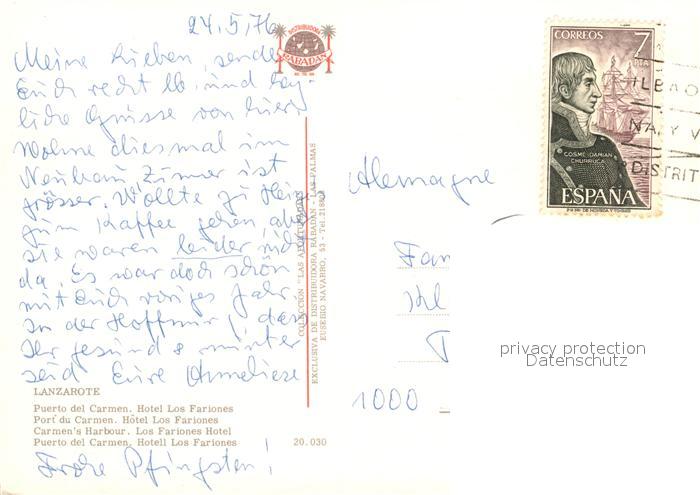 24.5.76
Meine Lieben, sende
Euch recht lb. und herz-
liche Grüsse von hier.
Wohne diesmal im
Neubau Zimmer ist
grösser. Wollte zu Heig
zum Kaffee gehen, aber
sie waren leider nicht
da. Es war doch schön
mit Euch voriges Jahr.
In der Hoffnung, dass
Ihr gesund & munter
seid Eure Anneliese
LANZAROTE
Puerto del Carmen. Hotel Los Fariones
Port du Carmen. Hôtel Los Fariones
Carmen's Harbour. Los Fariones Hotel
Puerto del Carmen. Hotell Los Fariones
20.030
Frohe Pfingsten!
DISTRIBUIDORA
RABADAN
COLECCION "LAS AFORTUNADAS"
EXCLUSIVA DE DISTRIBUIDORA RABADAN - LAS PALMAS
EUSEBIO NAVARRO, 53 - Tel.
Alemagne
Fam
Kl
1000
CORREOS 7
PTA
COSME DAMIAN
CHURRUCA
ESPAÑA
ILBAO
NAJY V
DISTRIT
privacy protection
Datenschutz